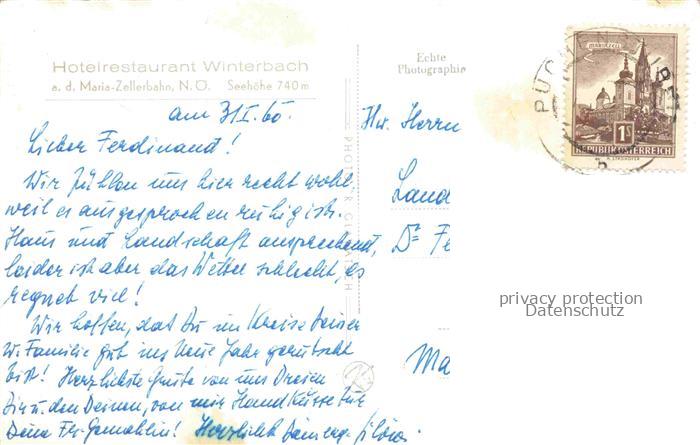 Hotelrestaurant Winterbach
a. d. Maria-Zellerbahn, N.Ö. Seehöhe 740 m
Echte
Photographie
MARIAZELL
1S
REPUBLIK ÖSTERREICH
am 31.I.60.
Lieber Ferdinand!
Wir fühlen uns hier recht wohl,
weil es ausgesprochen ruhig ist.
Haus und Landschaft ansprechend,
leider ist aber das Wetter schlecht, es
regnet viel!
Wir hoffen, daß Du im Kreise Deiner
w. Familie gut ins Neue Jahr gerutscht
bist! Herzlichste Grüße von uns Dreien
Dir u. den Deinen, von mir Handküsse für
Deine Fr. Gemahlin! Herzlichst
Hw. Herrn
Land
Dr Fe
Ma
privacy protection
Datenschutz